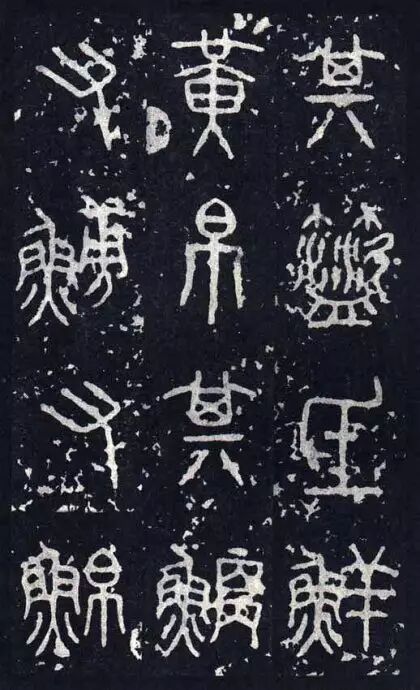 其盜氐鮮
黃帛其鯾
又鰟又鮊